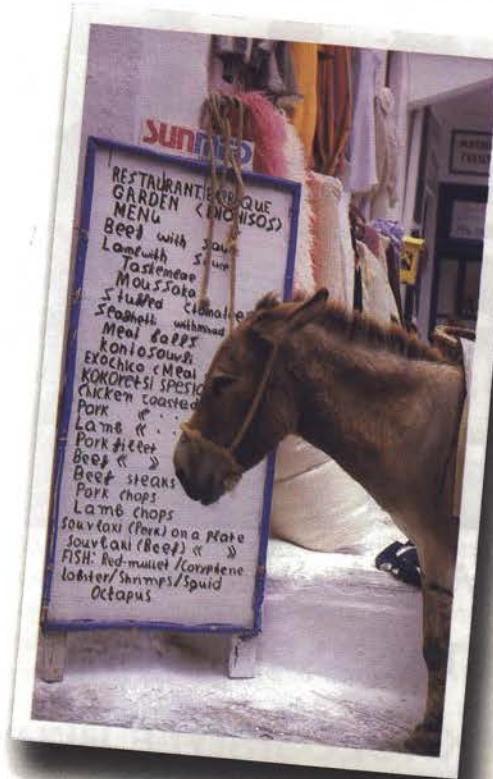 RESTAURANT
GARDEN (DIONISOS)
MENU
Beef with sauce
Lamb with
Moussaka
Stuffed
Meat Balls
kontosouvli
Exochico (Meat
KOKORETSI SPESIO
Chicken roasted
Pork «
Lamb «
Pork fillet
Beef « »
Beef steaks
Pork chops
Lamb chops
Souvlaki (Pork) on a plate
Souvlaki (Beef) « »
FISH: Red-mullet / Coryphene
lobster/Shrimps/Squid
Octapus